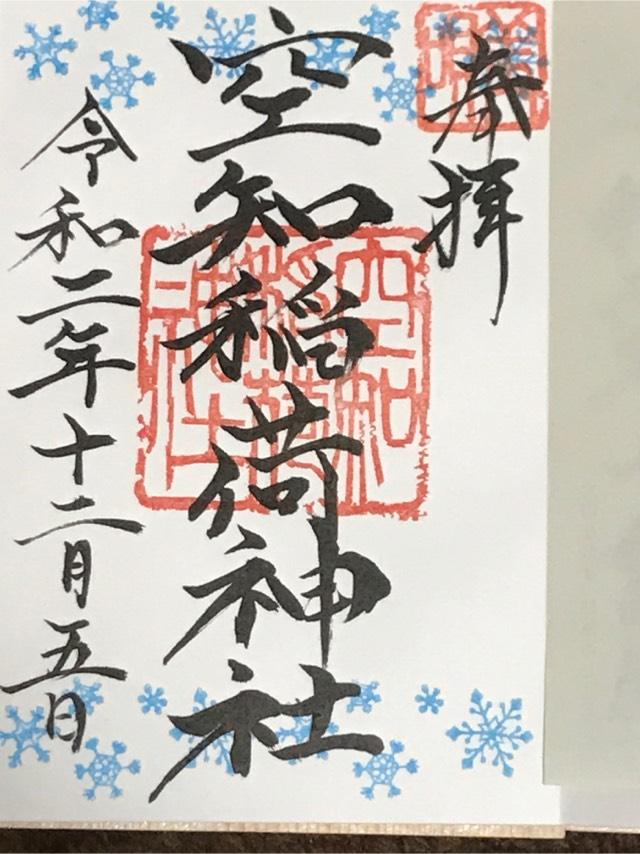 奉拝
空知稲荷神社
令和二年十二月五日
空知
稲荷
神社